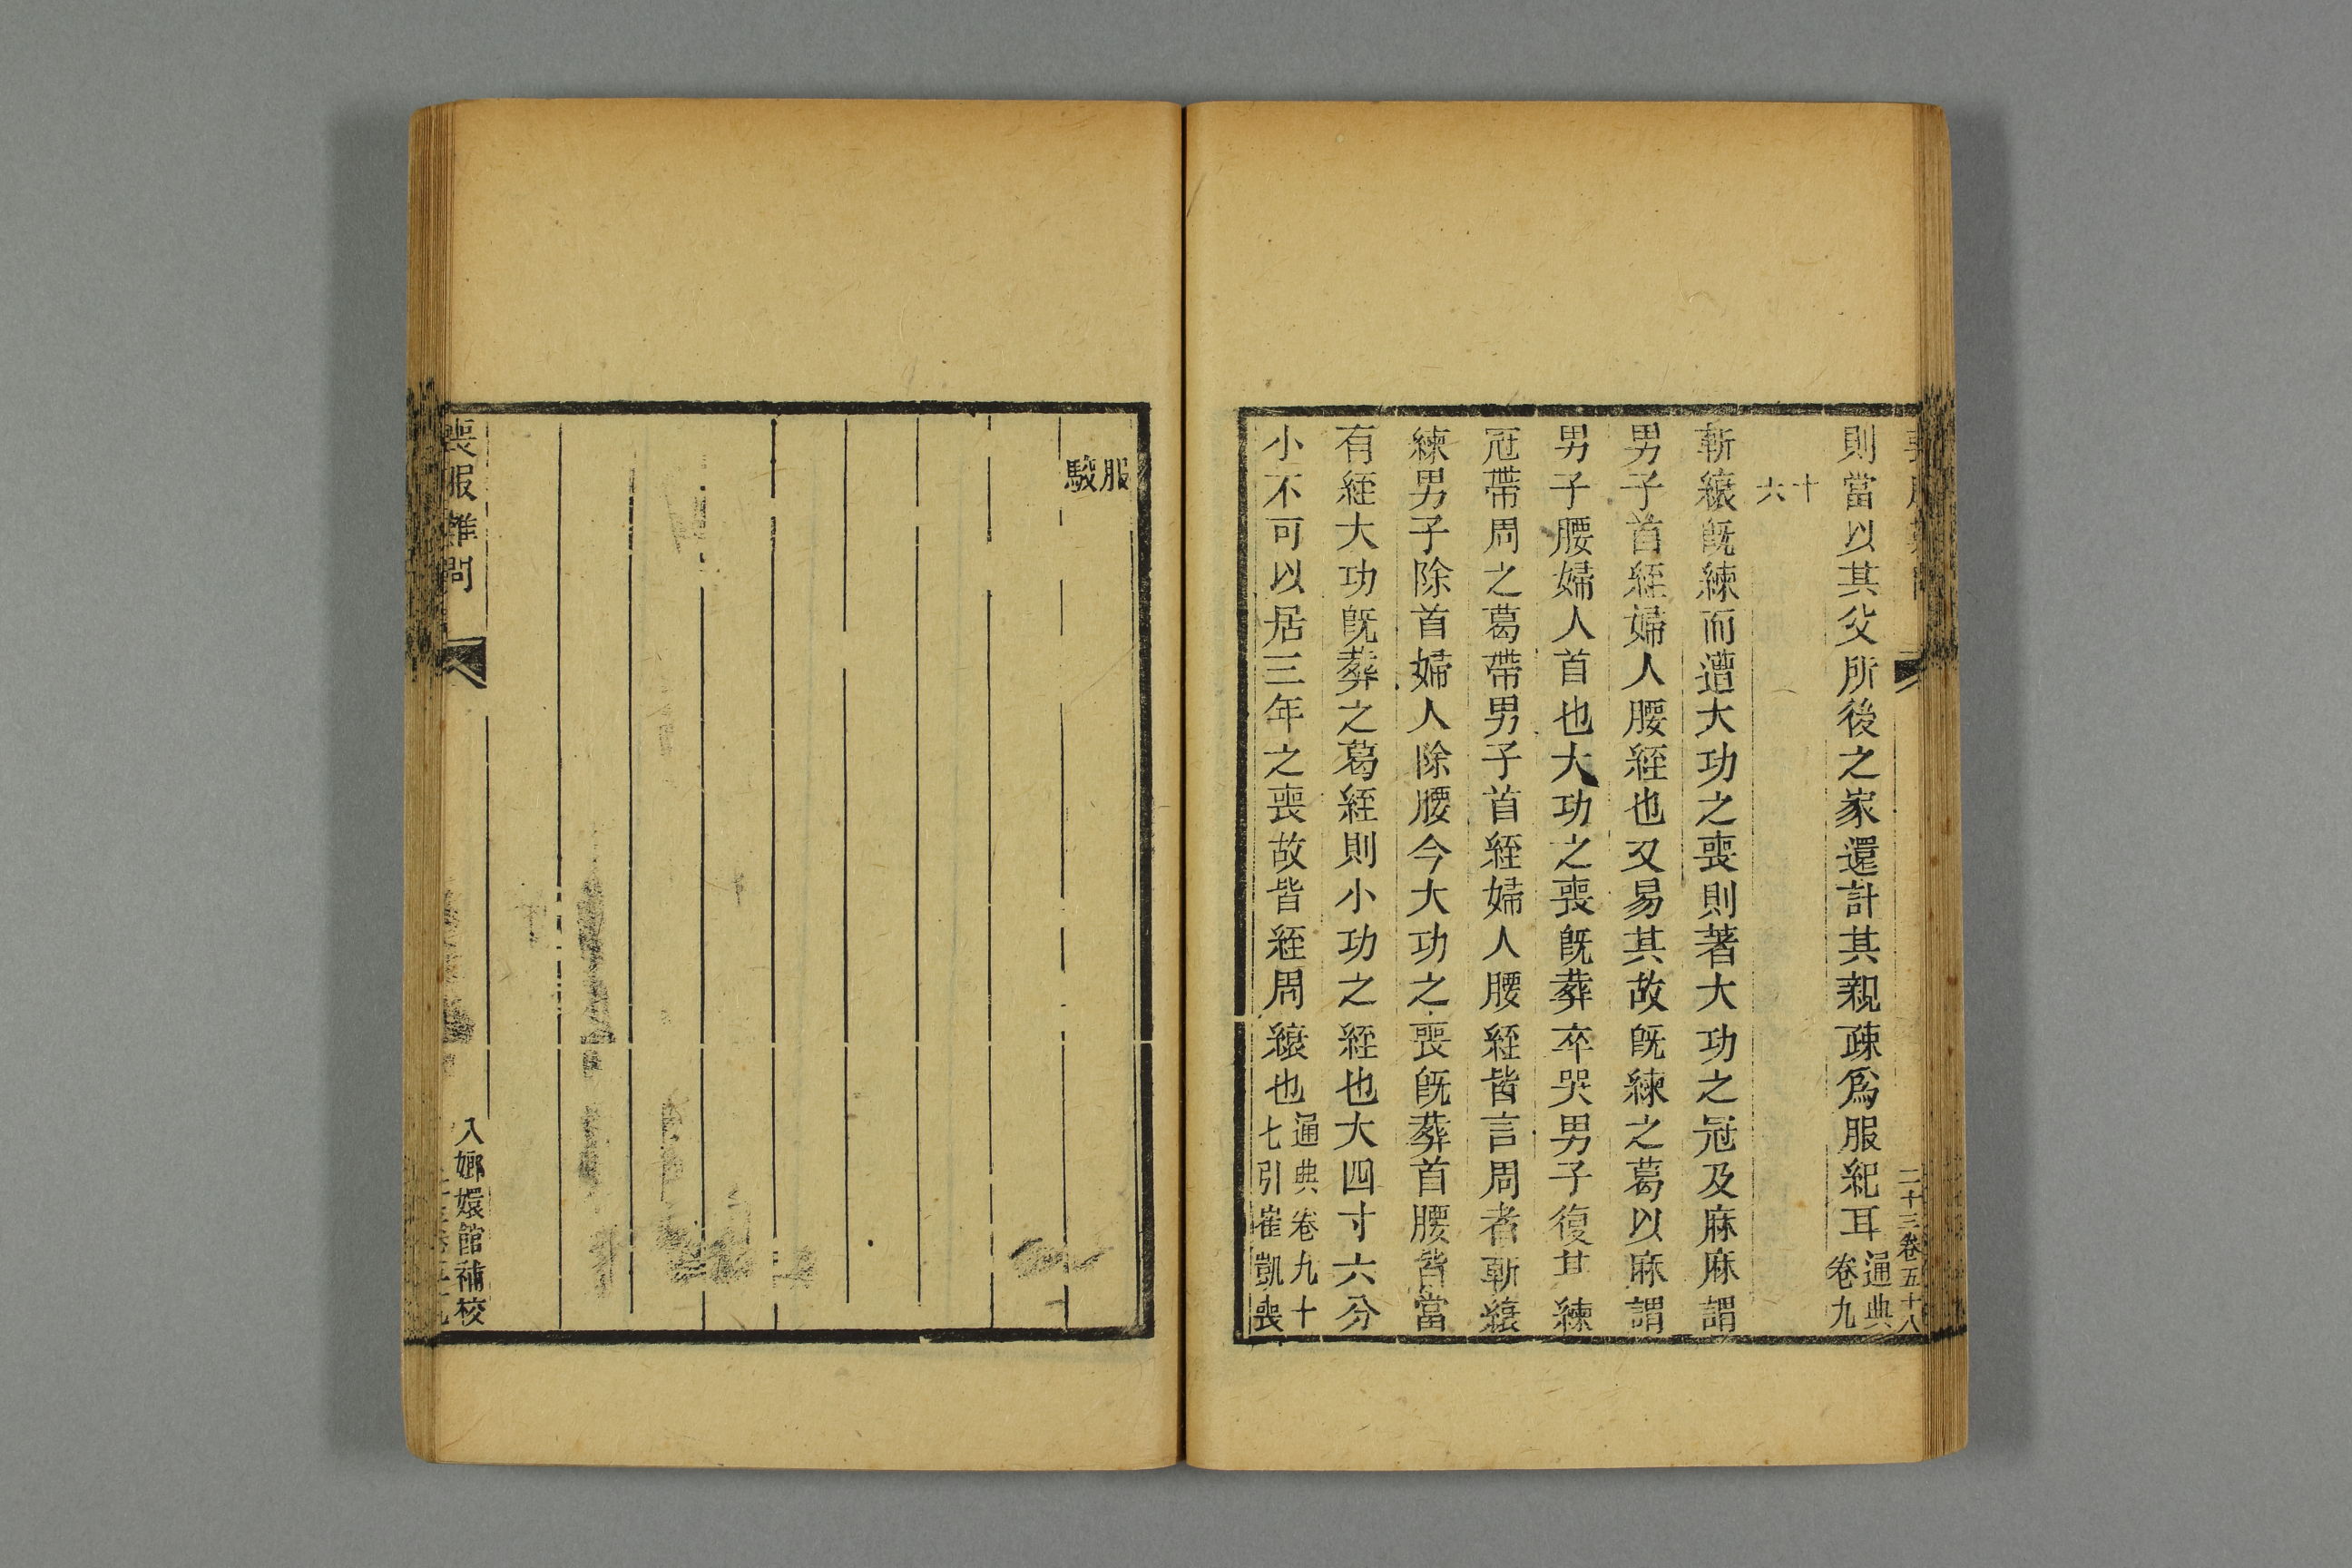 二十三卷五十八
則當以其父所後之家還計其親疎爲服紀耳通典卷九
十六
斬縗旣練而遭大功之喪則著大功之冠及麻麻謂
男子首絰婦人腰絰也又易其故旣練之葛以麻謂
男子腰婦人首也大功之喪旣葬卒哭男子復其練
冠帶周之葛帶男子首絰婦人腰絰皆言周者斬縗
練男子除首婦人除腰今大功之喪旣葬首腰皆當
有絰大功旣葬之葛絰則小功之絰也大四寸六分
小不可以居三年之喪故皆絰周縗也通典卷九十七引崔凱喪
服駮
喪服難問
八嫏嬛館補校